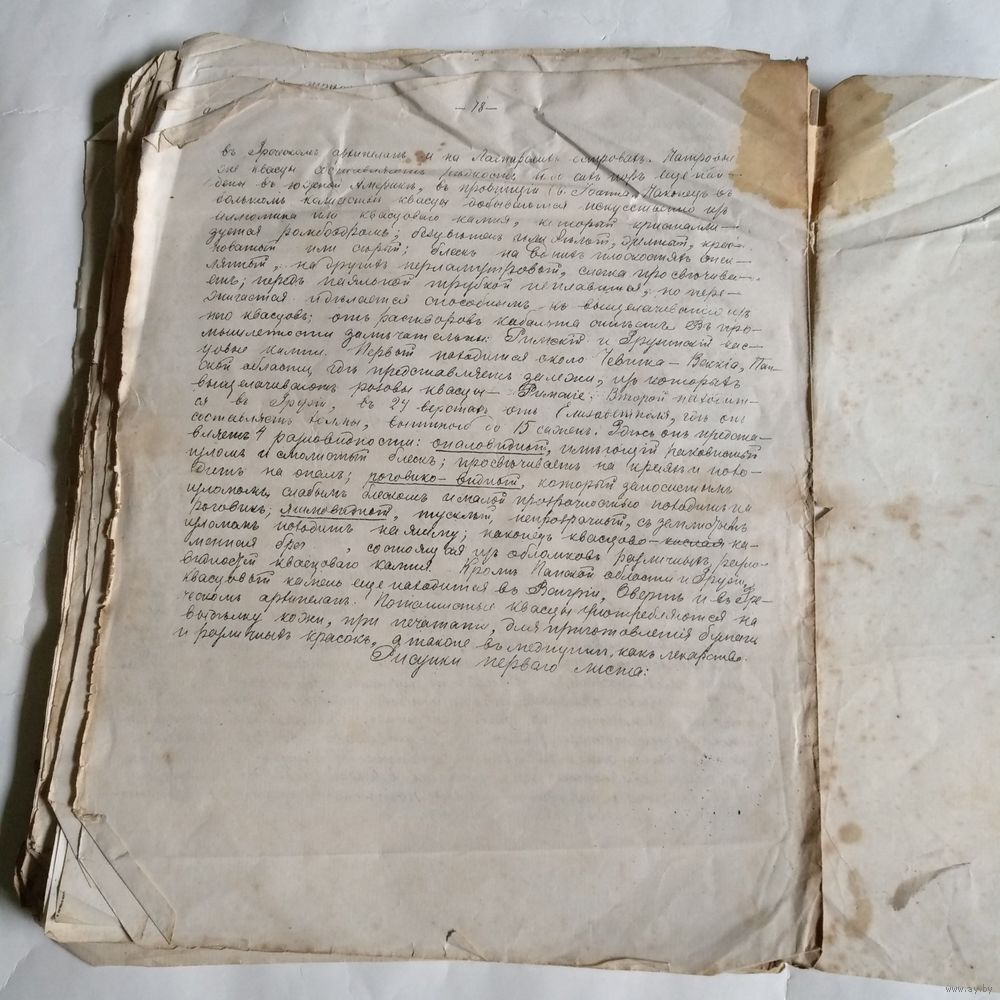 — 78 —
въ Греческомъ архипелагѣ и на Липарскихъ островахъ. Натровые
же квасцы составляютъ рѣдкость и до сихъ поръ еще най-
дены въ южной Америкѣ, въ провинціи Наконецъ въ
большомъ количествѣ квасцы добываются искусственно изъ
или квасцоваго камня, который кристалли-
зуется ромбоэдромъ; безцвѣтенъ или бѣлый, желтый, крас-
новатый или сѣрый; блескъ на однихъ плоскостяхъ стек-
лянный, на другихъ перламутровый, слегка просвѣчива-
етъ; передъ паяльной трубкой не плавится, но пере-
жигается и дѣлается способнымъ къ выщелачиванію изъ
него квасцовъ; отъ растворовъ кобальта синѣетъ. Въ про-
мышленности замѣчательны: Римскій и Грузинскій квас-
цовые камни. Первый находится около Чевита-Веккіа, Пап-
ской области, гдѣ представляетъ залежи, изъ которыхъ
выщелачиваютъ розовы квасцы — Римскіе. Второй находит-
ся въ Грузіи, въ 24 верстахъ отъ Елизаветполя, гдѣ онъ
составляетъ холмы, вышиною до 15 сажень. Здѣсь онъ предста-
вляетъ 4 разновидности: опаловидный, имѣющій раковистый
изломъ и смолистый блескъ; просвѣчиваетъ на краяхъ и похо-
дитъ на опалъ; роговико-видный, который занозистымъ
изломомъ, слабымъ блескомъ и малой прозрачностью походитъ на
роговикъ; яшмовидный, тусклый, непрозрачный, съ землистымъ
изломомъ походитъ на яшму; наконецъ квасцово-кислая ка-
менная бре , состоящая изъ обломковъ различныхъ разно-
видностей квасцоваго камня. Кромѣ Папской области и Грузіи,
квасцовый камень еще находится въ Венгріи, Овернѣ и въ Гре-
ческомъ архипелагѣ. Поташистые квасцы употребляются на
выдѣлку кожи, при печатаніи, для приготовленія бумаги
и различныхъ красокъ, а также въ медицинѣ, какъ лекарство.
Рисунки перваго листа:
www.ay.by